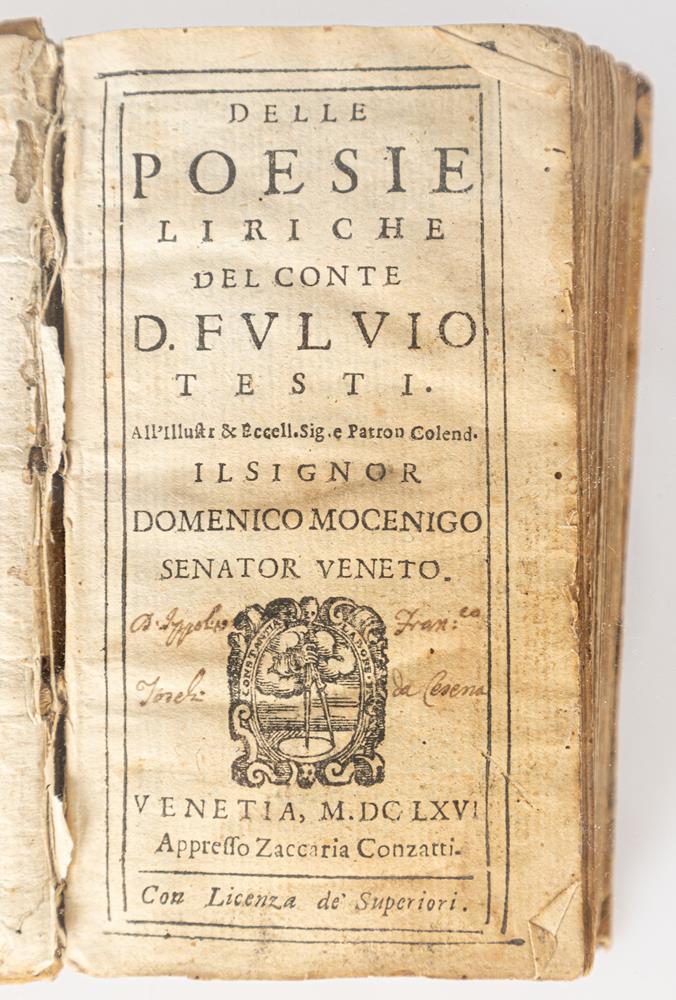 DELLE
POESIE
LIRICHE
DEL CONTE
D. FVLVIO
TESTI.
All'Illustr & Eccell. Sig. e Patron Colend.
IL SIGNOR
DOMENICO MOCENIGO
SENATOR VENETO.
D. Ippol:to Fran:co
da Cesena
VENETIA, M.DC LXVI
Appresso Zaccaria Conzatti.
Con Licenza de' Superiori.